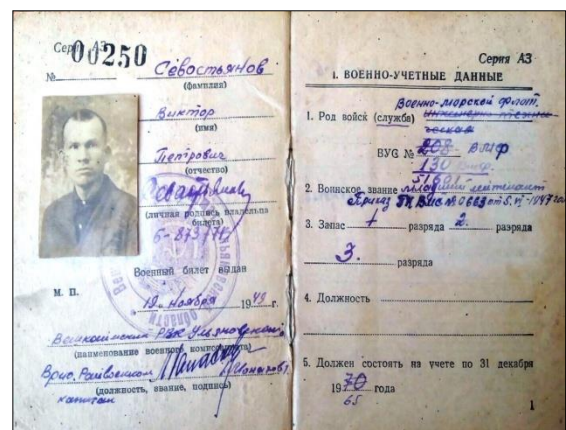 Серия АЗ
№ 00250
Севостьянов
(фамилия)
Виктор
(имя)
Петрович
(отчество)
(личная подпись владельца
билета)
Военный билет выдан
М. П.
„19" Ноября 1949 г.
РВК Ульяновской
(наименование военного комиссариата)
Врио. Райвоенком
(должность, звание, подпись)
капитан
Серия АЗ
I. ВОЕННО-УЧЕТНЫЕ ДАННЫЕ
Военно-морской флот.
1. Род войск (служба)
ВУС № 208 ВМФ
130
2. Воинское звание младший лейтенант
Приказ № 0663 от 5. VI-1947
3. Запас 1 разряда 2. разряда
3. разряда
4. Должность
5. Должен состоять на учете по 31 декабря
1970 года
65
1